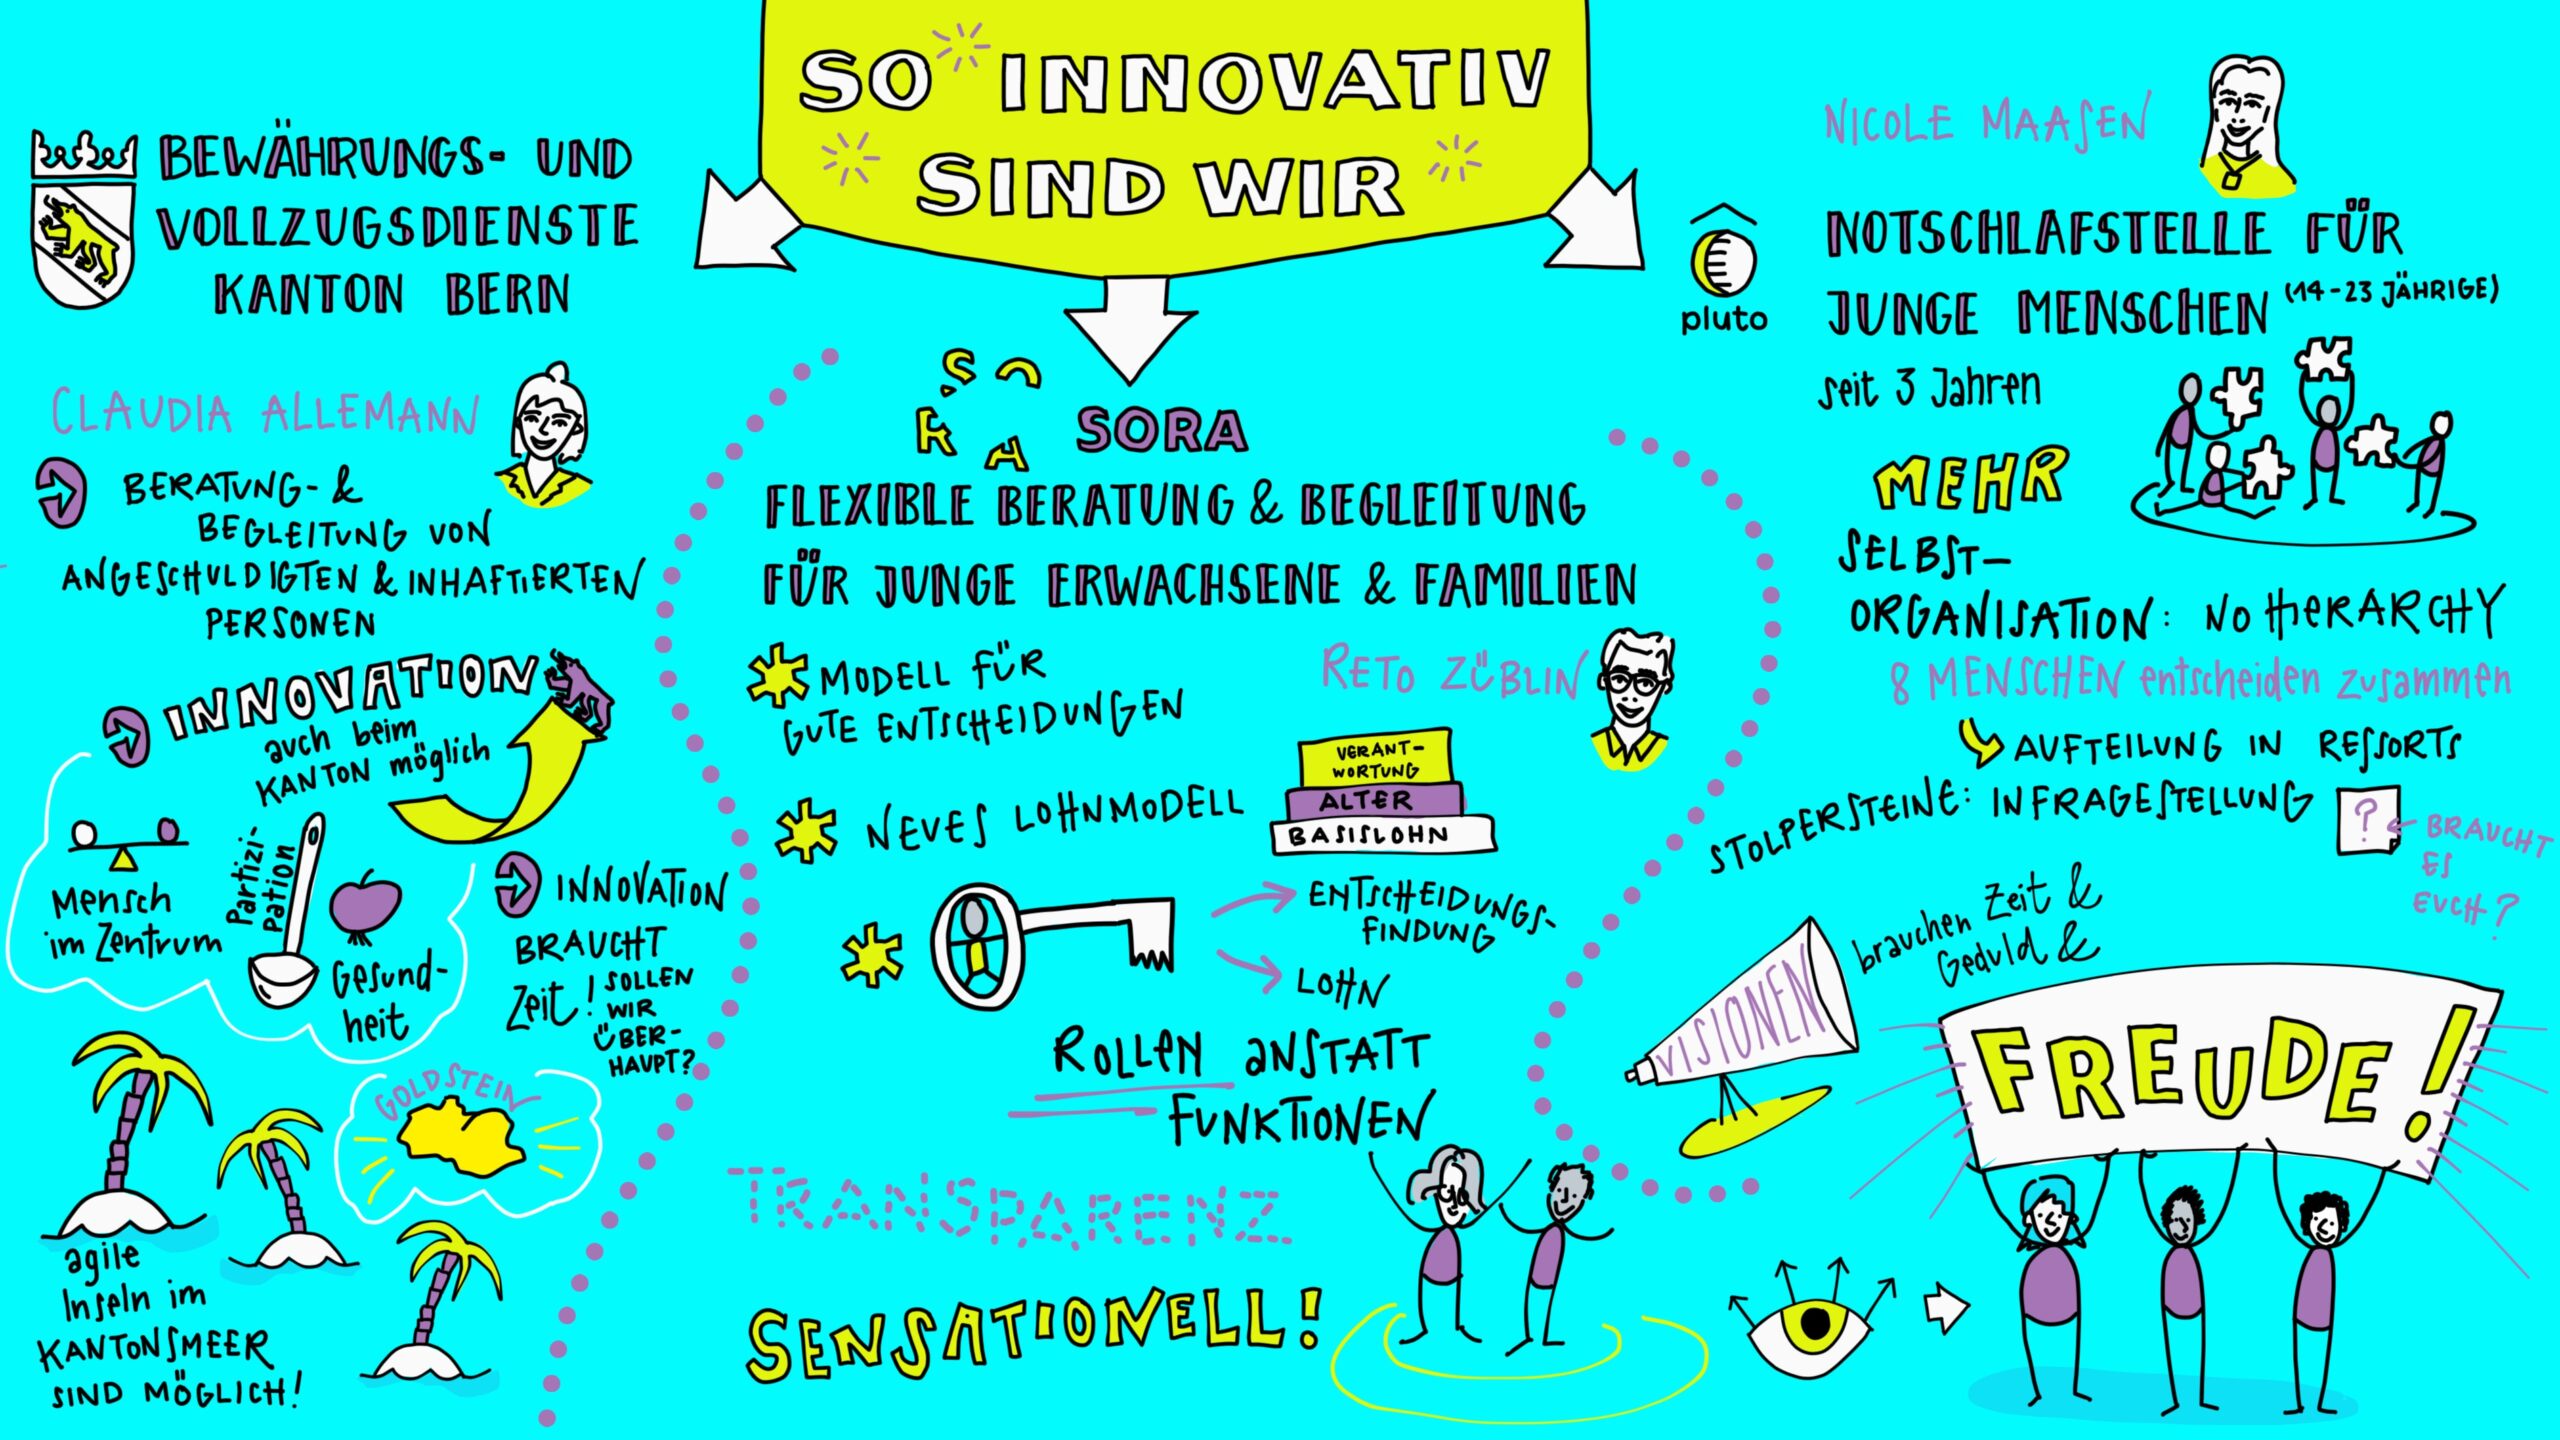 SO INNOVATIV
SIND WIR
BEWÄHRUNGS- UND
VOLLZUGSDIENSTE
KANTON BERN
CLAUDIA ALLEMANN
BERATUNG- &
BEGLEITUNG VON
ANGESCHULDIGTEN & INHAFTIERTEN
PERSONEN
INNOVATION
auch beim
KANTON möglich
Mensch
im Zentrum
Partizi-
pation
Gesund-
heit
INNOVATION
BRAUCHT
Zeit!
SOLLEN
WIR
ÜBER-
HAUPT?
GOLDSTEIN
agile
Inseln im
KANTONSMEER
SIND MÖGLICH!
SO
RA
SORA
FLEXIBLE BERATUNG & BEGLEITUNG
FÜR JUNGE ERWACHSENE & FAMILIEN
RETO ZÜBLIN
MODELL FÜR
GUTE ENTSCHEIDUNGEN
NEUES LOHNMODELL
VERANT-
WORTUNG
ALTER
BASISLOHN
ENTSCHEIDUNGS-
FINDUNG
LOHN
ROLLEN ANSTATT
FUNKTIONEN
TRANSPARENZ
SENSATIONELL!
NICOLE MAASEN
pluto
NOTSCHLAFSTELLE FÜR
JUNGE MENSCHEN (14-23 JÄHRIGE)
seit 3 Jahren
MEHR
SELBST-
ORGANISATION: NO HIERARCHY
8 MENSCHEN entscheiden zusammen
AUFTEILUNG IN RESSORTS
STOLPERSTEINE: INFRAGESTELLUNG
?
BRAUCHT
ES
EUCH?
VISIONEN
brauchen Zeit &
Geduld &
FREUDE!